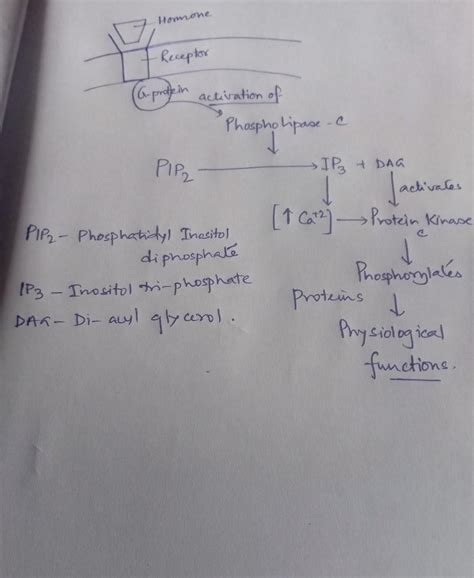 Hormone
Receptor
G-protein activation of
Phospholipase-C
PIP2 → IP3 + DAG
activates
[↑ Ca+2] → Protein Kinase
C
PIP2 - Phosphatidyl Inositol
diphosphate
Phosphorylates
IP3 - Inositol tri-phosphate
Proteins
DAG - Di-acyl glycerol.
Physiological
functions.